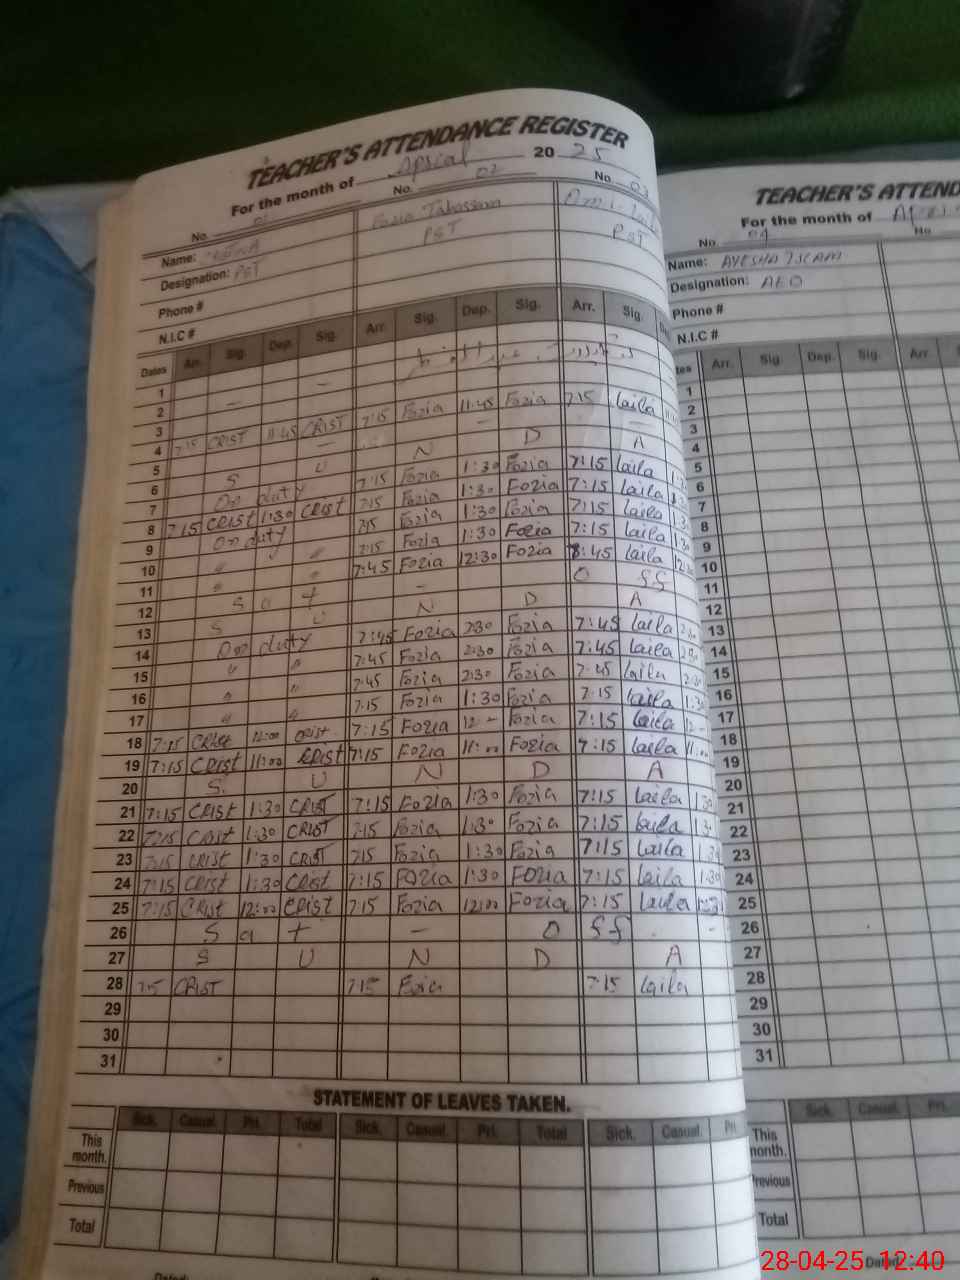 TEACHER'S ATTENDANCE REGISTER
For the month of 2025
No. 01 No. 02 No. 03
Name: Fozia Tabassam
Designation: PST PST PST
Phone #
N.I.C #
Dates Arr. Sig. Dep. Sig. Arr. Sig. Dep. Sig. Arr. Sig.
1
2
3
4 7:15 CRIST 11:45 CRIST 7:15 Fozia 11:45 Fozia 7:15 Laila
5
6 S U N D A
7 On duty 7:15 Fozia 1:30 Fozia 7:15 Laila
8 7:15 CRIST 1:30 CRIST 7:15 Fozia 1:30 Fozia 7:15 Laila
9 On duty 7:15 Fozia 1:30 Fozia 7:15 Laila
10 " " 7:15 Fozia 1:30 Fozia 7:15 Laila
11 " " 7:45 Fozia 12:30 Fozia 8:45 Laila
12 S a t - O ff
13 S U N D A
14 On duty 7:45 Fozia 2:30 Fozia 7:45 Laila
15 " " 7:45 Fozia 2:30 Fozia 7:45 Laila
16 " " 7:45 Fozia 2:30 Fozia 7:45 Laila
17 " " 7:15 Fozia 1:30 Fozia 7:15 Laila
18 7:15 CRIST 12:00 CRIST 7:15 Fozia 12 - Fozia 7:15 Laila
19 7:15 CRIST 11:00 CRIST 7:15 Fozia 11:00 Fozia 7:15 Laila 11:00
20 S U N D A
21 7:15 CRIST 1:30 CRIST 7:15 Fozia 1:30 Fozia 7:15 Laila 1:30
22 7:15 CRIST 1:30 CRIST 7:15 Fozia 1:30 Fozia 7:15 Laila 1:30
23 7:15 CRIST 1:30 CRIST 7:15 Fozia 1:30 Fozia 7:15 Laila 1:30
24 7:15 CRIST 1:30 CRIST 7:15 Fozia 1:30 Fozia 7:15 Laila 1:30
25 7:15 CRIST 12:00 CRIST 7:15 Fozia 12:00 Fozia 7:15 Laila
26 S a t - O ff -
27 S U N D A
28 7:15 CRIST 7:15 Fozia 7:15 Laila
29
30
31
STATEMENT OF LEAVES TAKEN.
Sick. Casual. Pri. Total Sick. Casual. Pri. Total Sick. Casual. Pri.
This month.
Previous
Total
Dated:
TEACHER'S ATTEND
For the month of
No. 04 No
Name: AYESHA ISLAM
Designation: AEO
Phone #
N.I.C #
tes Arr. Sig. Dep. Sig. Arr.
1
2
3
4
5
6
7
8
9
10
11
12
13
14
15
16
17
18
19
20
21
22
23
24
25
26
27
28
29
30
31
Sick. Casual. Pri.
This month.
Previous
Total
Dated:
28-04-25 12:40